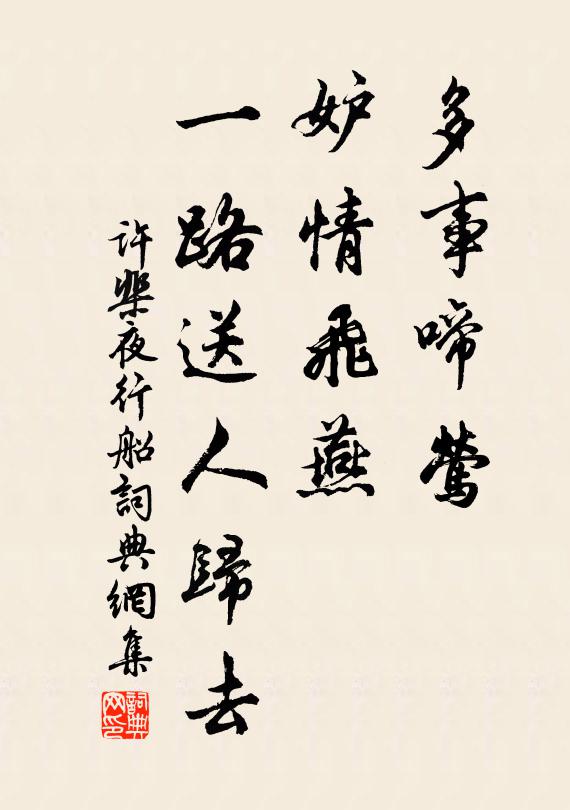 多事啼鶯
妒情飛燕
一路送人歸去
許棐夜行船詞典網集
詞典
网印